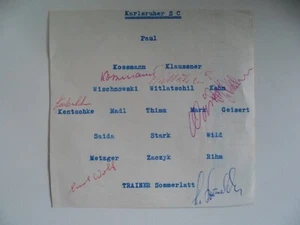 Karlsruher S C
Paul
Kossmann Klaussner
Wischnowski Witlatschil Kahn
Kentschke Radl Thimm Marx Geisert
Saida Stark Wild
Metzger Zaczyk Rihm
TRAINER Sommerlatt